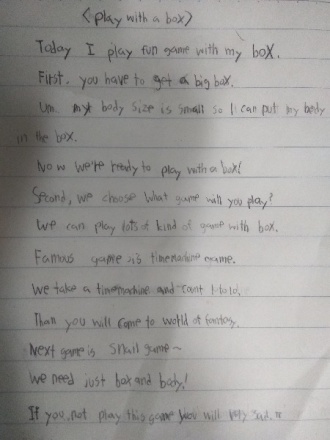 <play with a box>
Today I play fun game with my box.
First. you have to get a big box.
Um. my body size is small so I can put my body
in the box.
Now we're ready to play with a box!
Second, we choose what game will you play?
We can play lots of kind of game with box.
Famous game is timemachine game.
We take a timemachine and count 1 to 10.
Than you will come to world of fantasy.
Next game is snail game~
We need just box and body!
If you not play this game you will very sad.